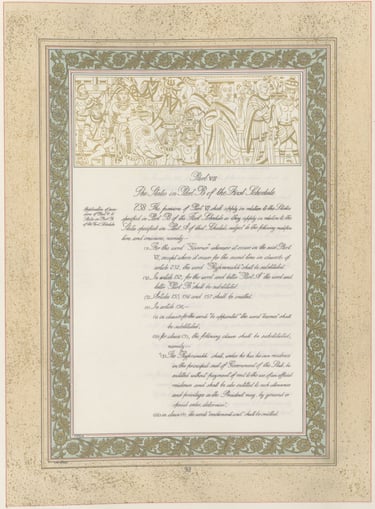 Part VII
The States in Part B of the First Schedule
Application of provisions of Part VI to States in Part B of the First Schedule.
238. The provisions of Part VI shall apply in relation to the States
specified in Part B of the First Schedule as they apply in relation to the
States specified in Part A of that Schedule subject to the following modifica-
tions and omissions, namely:—
(1) For the word "Governor" wherever it occurs in the said Part
VI, except where it occurs for the second time in clause (b) of
article 232, the word "Rajpramukh" shall be substituted.
(2) In article 152, for the word and letter "Part A" the word and
letter "Part B" shall be substituted.
(3) Articles 155, 156 and 157 shall be omitted.
(4) In article 158,—
(i) in clause (1) for the words "be appointed" the word "become" shall
be substituted;
(ii) for clause (3), the following clause shall be substituted,
namely:—
"(3) The Rajpramukh shall, unless he has his own residence
in the principal seat of Government of the State, be
entitled without payment of rent to the use of an official
residence and shall be also entitled to such allowances
and privileges as the President may, by general or
special order, determine";
(iii) in clause (4), the words "emoluments and" shall be omitted.